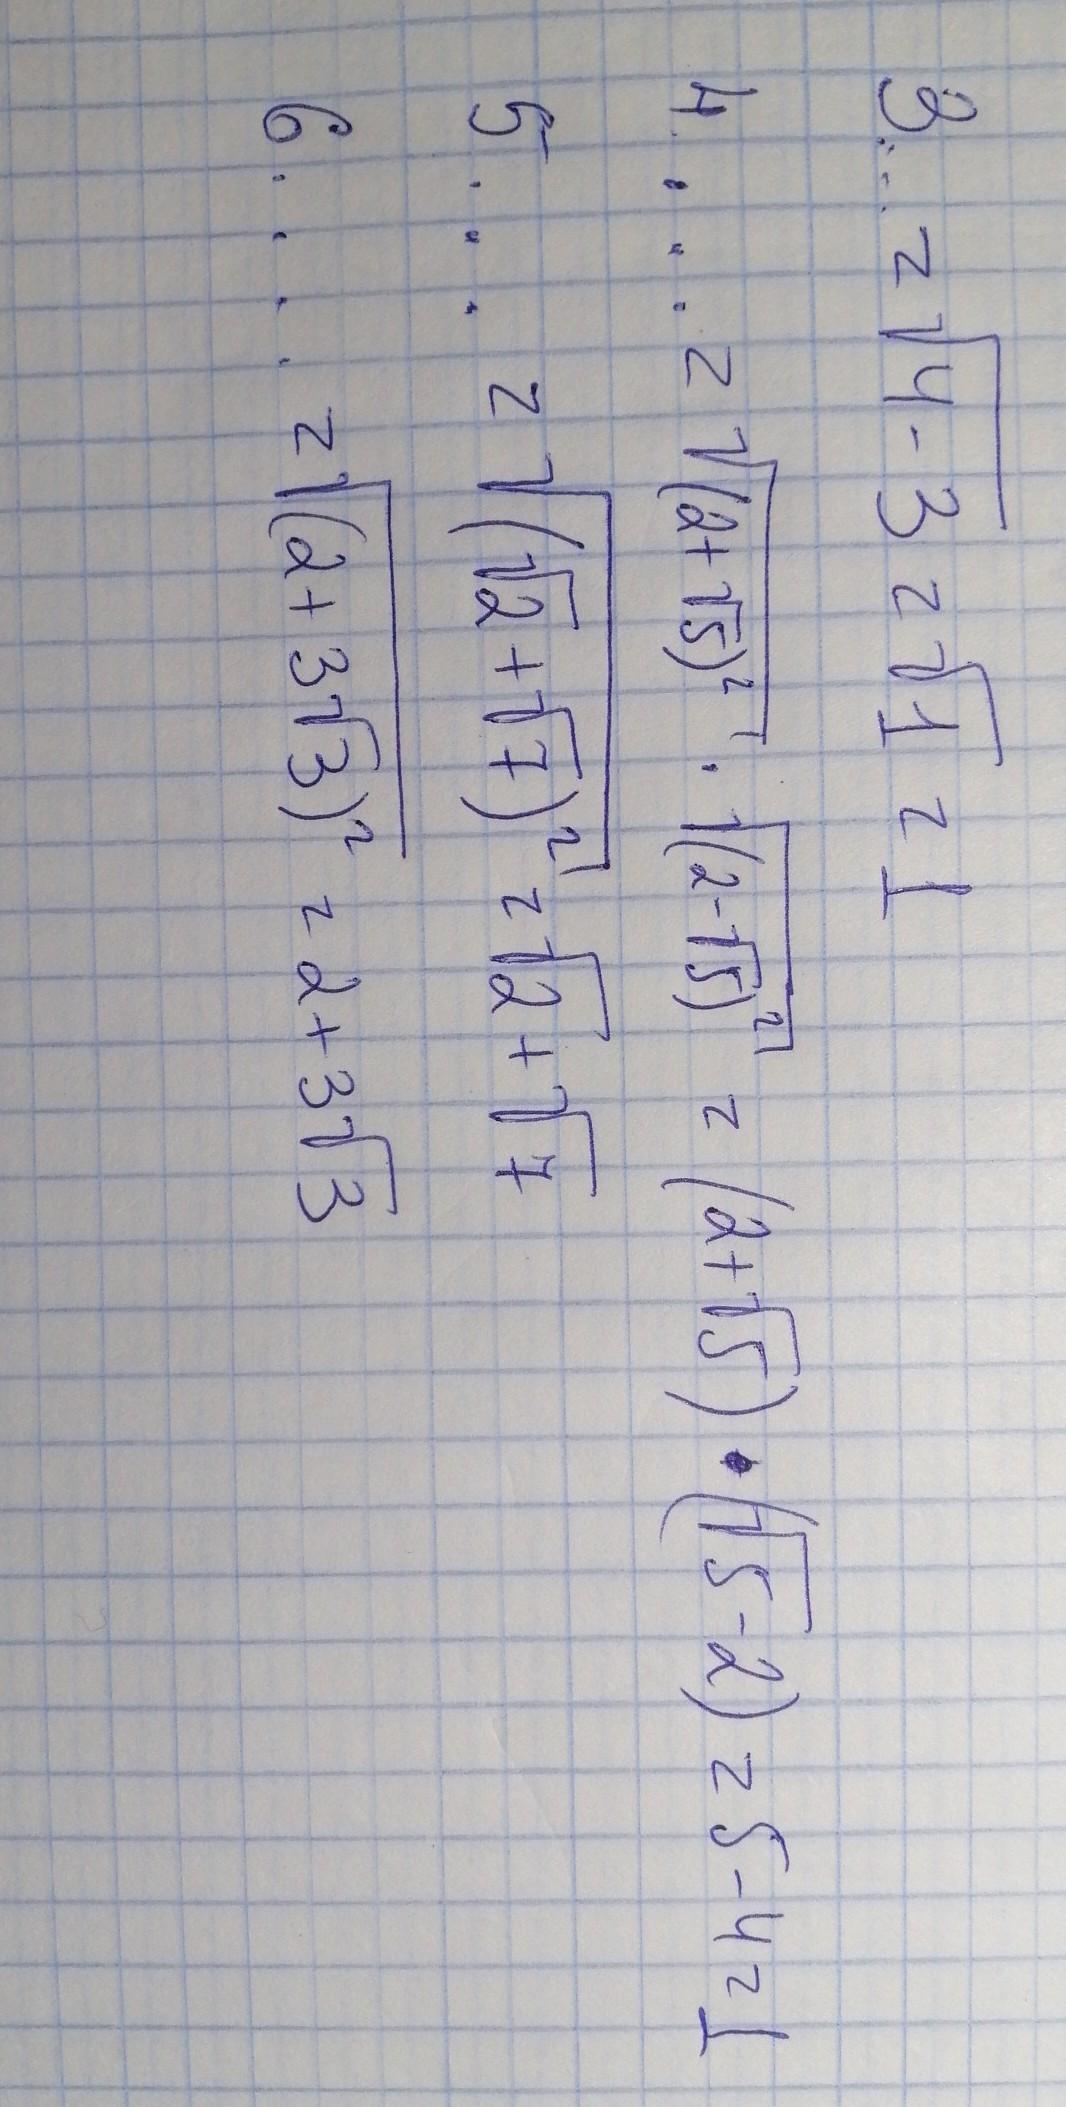 3... = √4-3 = √1 = 1
4.... = √(2+√5)² · √(2-√5)² = (2+√5) · (√5-2) = 5-4=1
5.... = √(√2+√7)² = √2+√7
6.... = √(2+3√3)² = 2+3√3